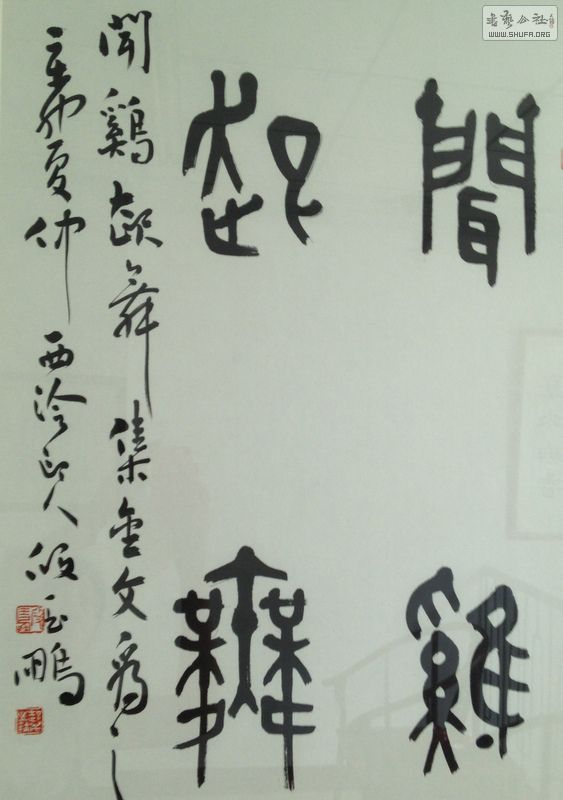 聞雞
起舞
聞鷄起舞 集金文為之
辛卯夏仲 西泠印人 段玉鵬
書藝公社
WWW.SHUFA.ORG